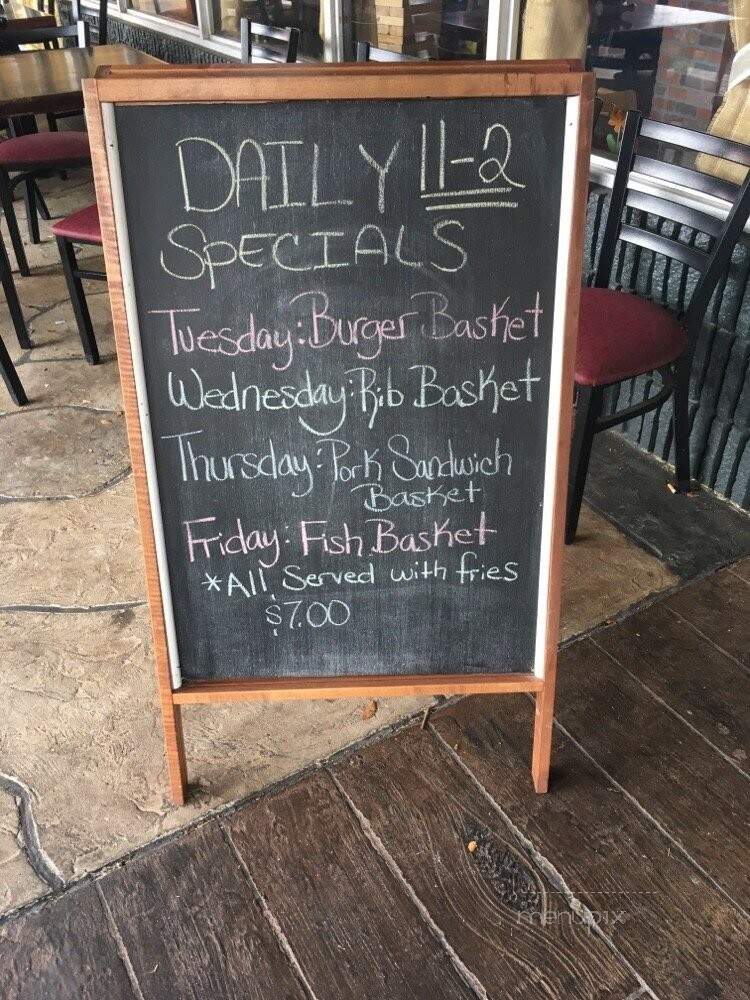 DAILY 11-2
SPECIALS
Tuesday: Burger Basket
Wednesday: Rib Basket
Thursday: Pork Sandwich
Basket
Friday: Fish Basket
*All Served with fries
$7.00
menupix